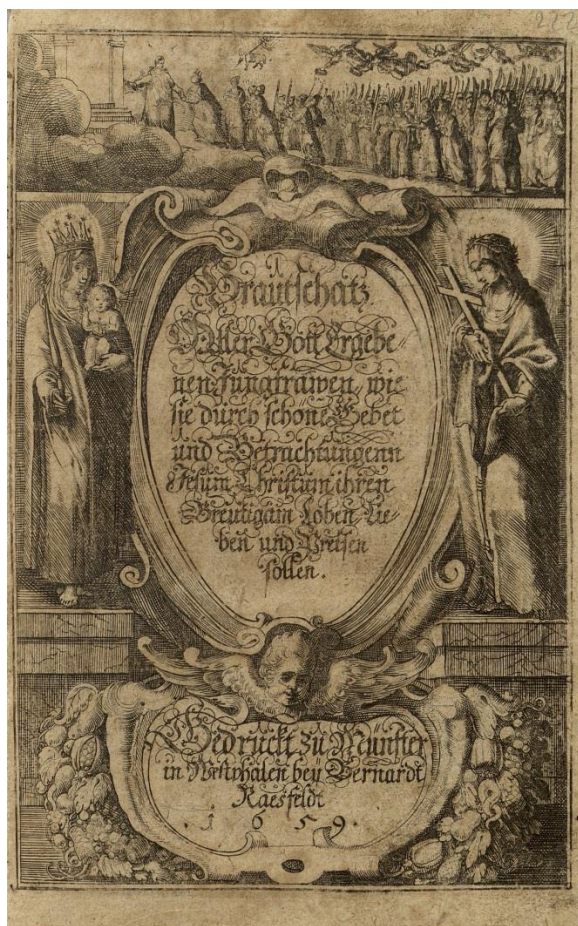 222
Brautschatz
Aller Gott Ergebe-
nen Jungfrawen, wie
sie durch schöne Gebet
und Betrachtungenn
Jesum Christum ihren
Breutigam Loben, Lie-
ben und Preisen
sollen.
Gedruckt zu Münster
in Westphalen bey Bernardt
Raesfeldt
.1659.